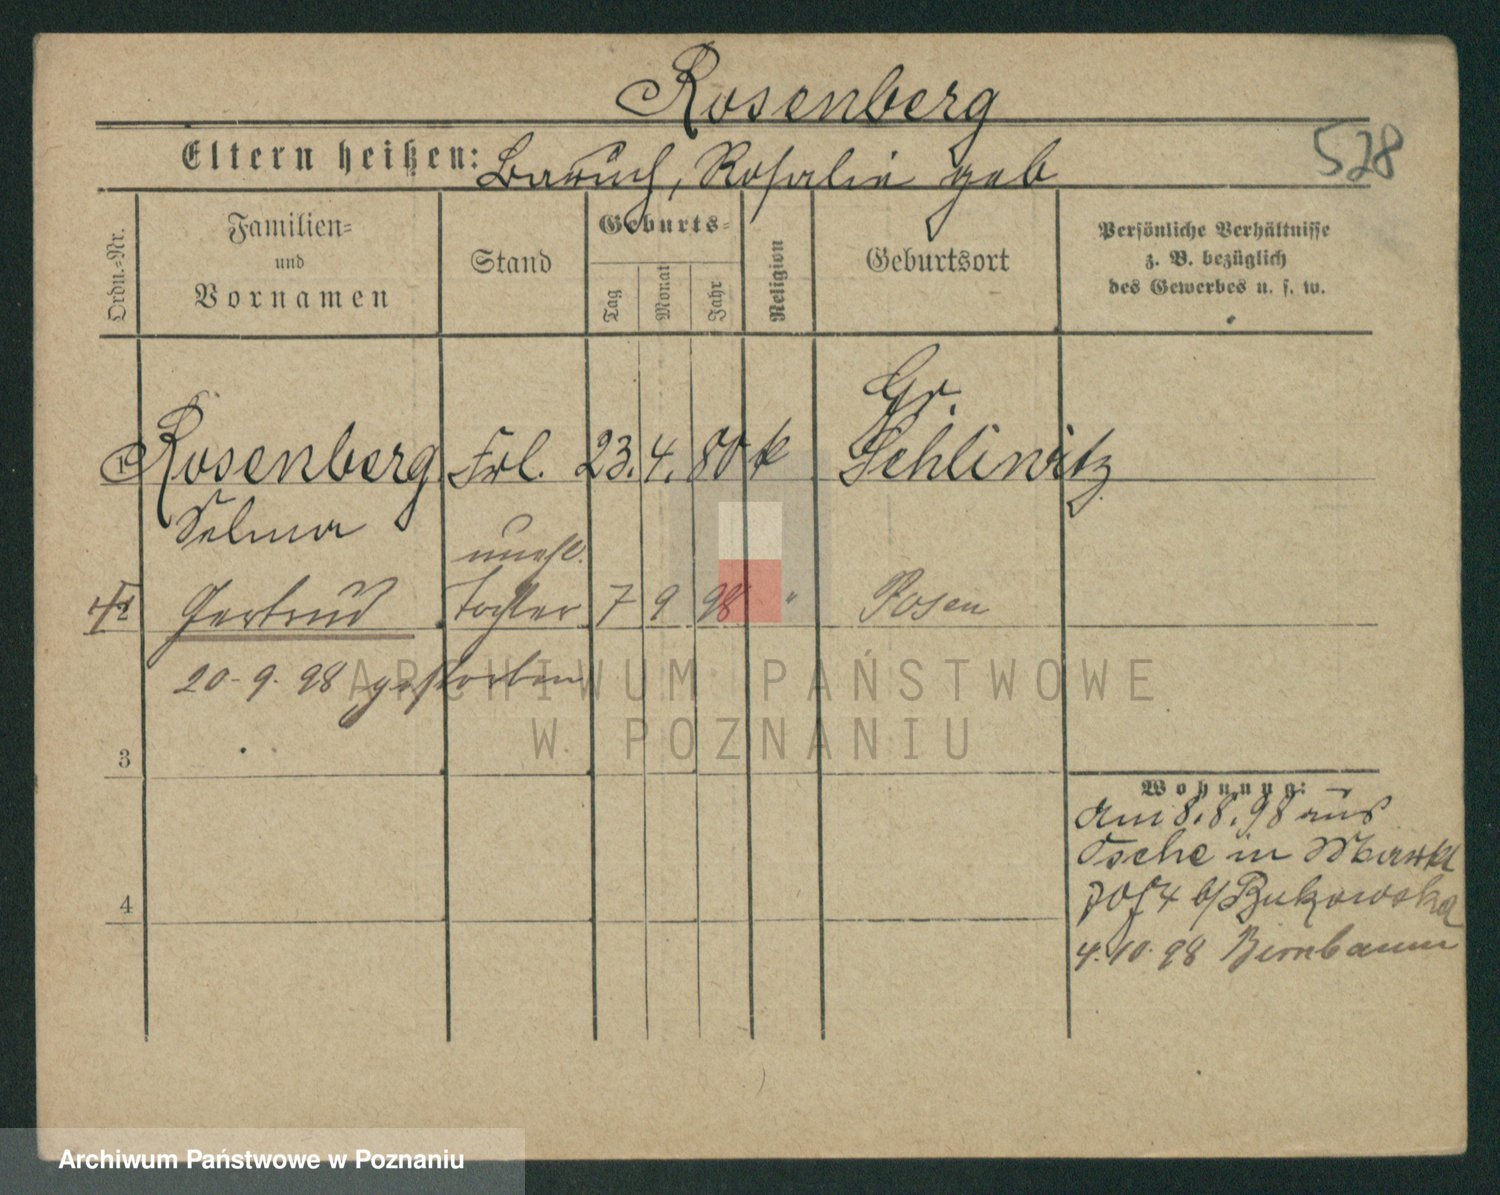 Rosenberg
528
Eltern heißen: Baruch, Rosalie geb
Ordn.-Nr.
Familien-
und
Vornamen
Stand
Geburts-
Tag
Monat
Jahr
Religion
Geburtsort
Persönliche Verhältnisse
z. B. bezüglich
des Gewerbes u. s. w.
1 Rosenberg Frl. 23. 4. 80 k Gr. Schliwitz
Selma
unehl.
Gertrud Tochter 7 9 98 " Posen
20-9.98 gestorben
3
4
Wohnung:
am 8.8.98 aus
in
b/ Bukowska
4.10.98 Birnbaum
ARCHIWUM PAŃSTWOWE
W POZNANIU
Archiwum Państwowe w Poznaniu